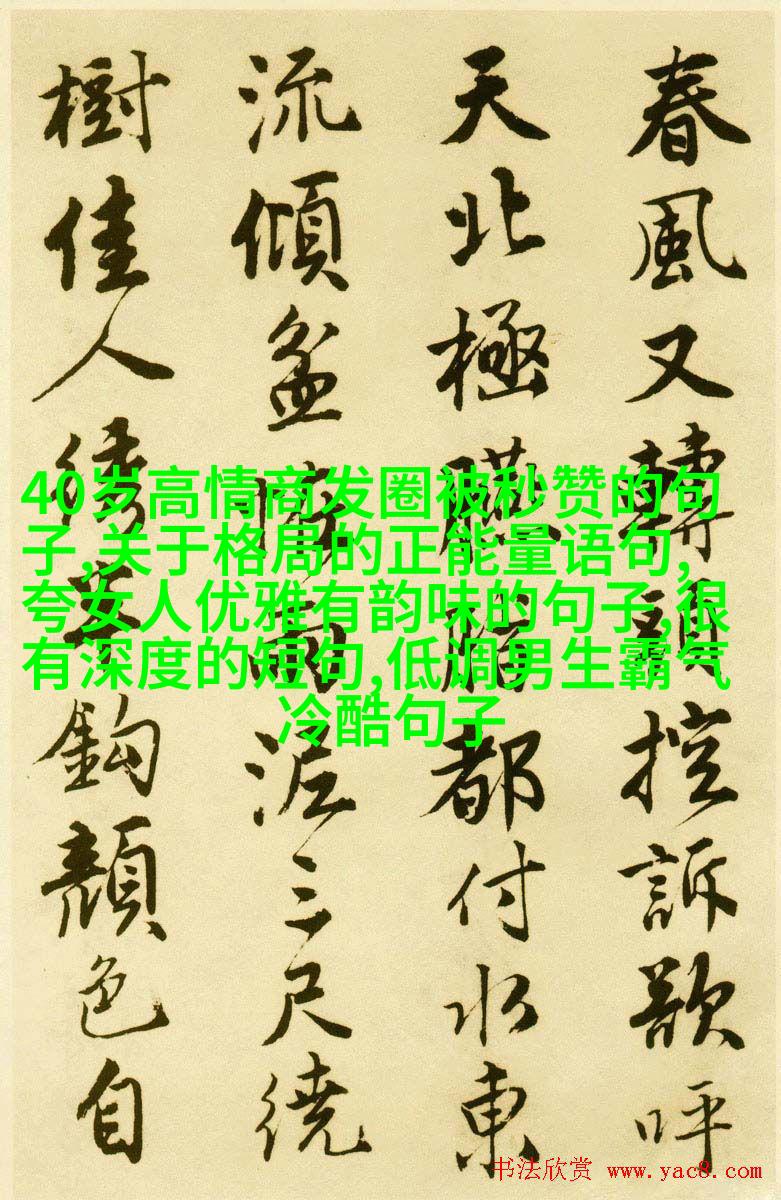 春風又轉頭控訴歌呼
天北極都付水東
流傾盆雨泥三尺繞
樹佳人草鈎顏色自
40岁高情商发圈被秒赞的句
子,关于格局的正能量语句,
夸女人优雅有韵味的句子,很
有深度的短句,低调男生霸气
冷酷句子
书法欣赏 www.yac8.com